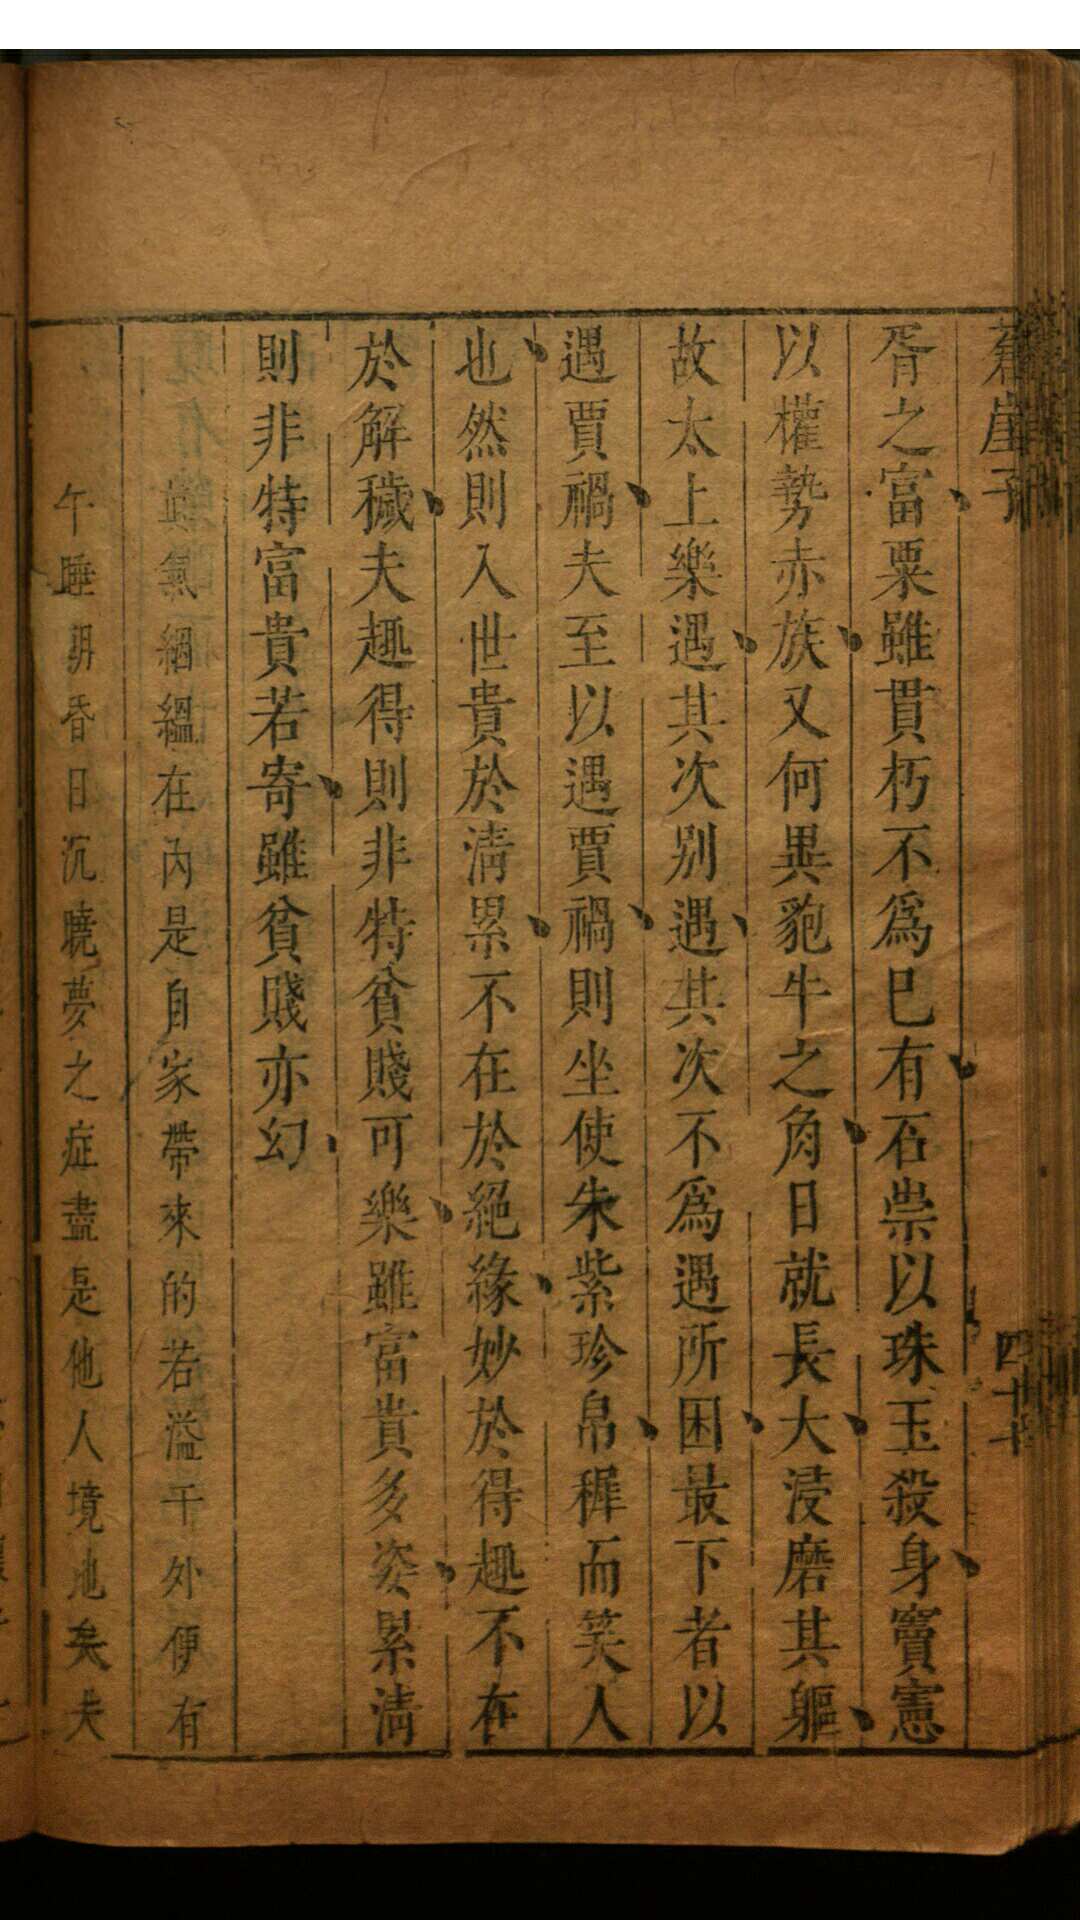 蒼崖子
四十七
胥之富粟雖貫朽不為巳有石崇以珠玉殺身竇憲
以權勢赤族又何異豝牛之角日就長大浸磨其軀
故太上樂遇其次別遇其次不為遇所困最下者以
遇賈禍夫至以遇賈禍則坐使朱紫珍帛穉而笑人
也然則入世貴於清累不在於絕緣妙於得趣不在
於解穢夫趣得則非特貧賤可樂雖富貴多姿累清
則非特富貴若寄雖貧賤亦幻
真氣絪縕在內是自家帶來的若溢于外便有
午睡朝昏日沉曉夢之症盡是他人境地矣夫